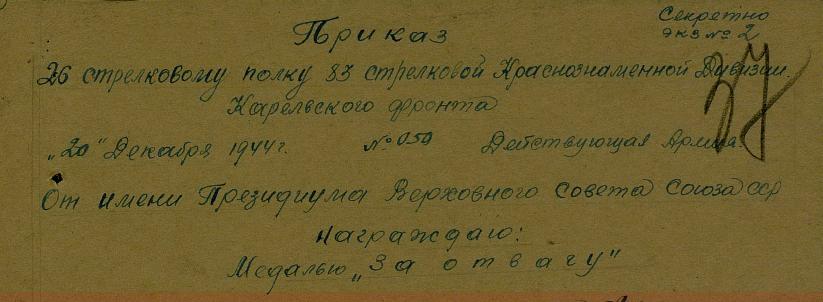 Секретно
экз № 2
Приказ
37
26 стрелковому полку 83 стрелковой Краснознаменной Дивизии.
Карельского фронта
„20" Декабря 1944 г. № 050 Действующая Армия
От имени Президиума Верховного Совета Союза ССР
Награждаю:
Медалью „За отвагу"